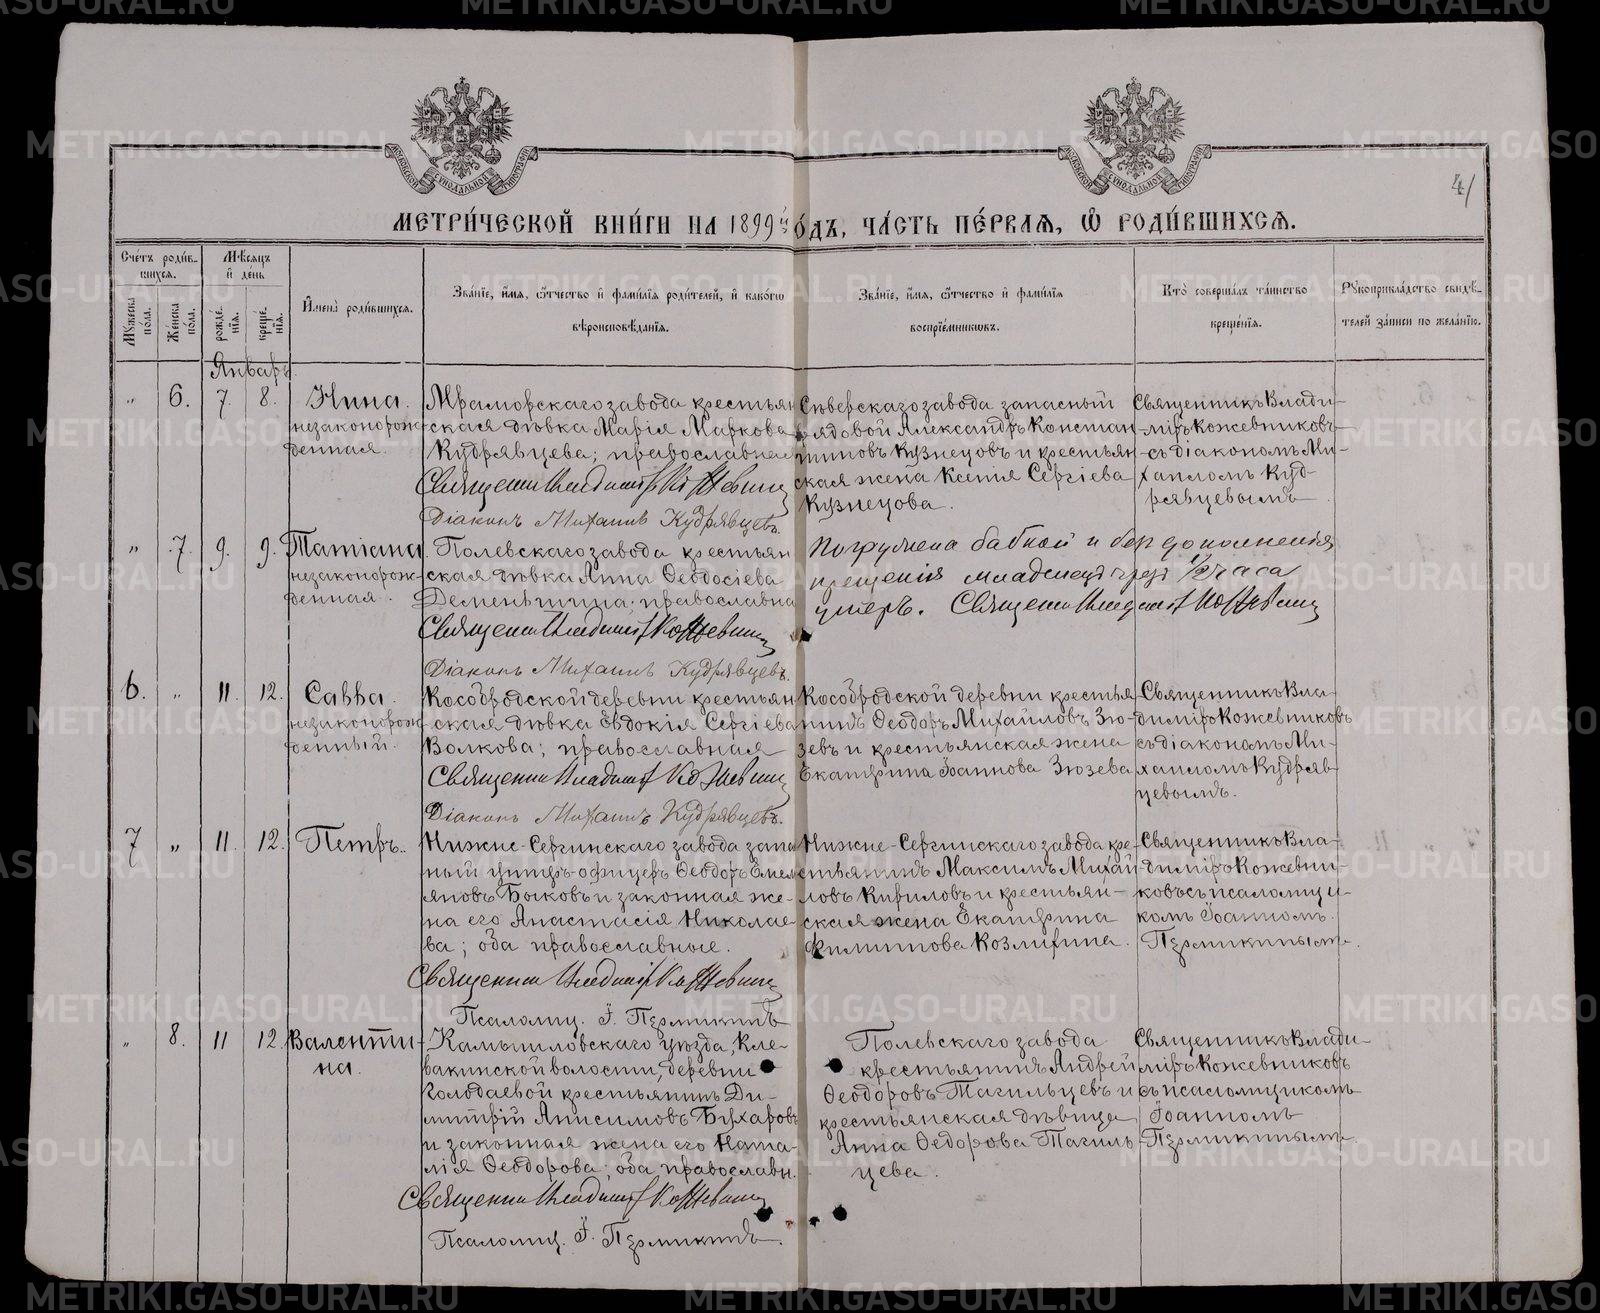 METRIKI.GASO-URAL.RU
МОСКОВСКОЙ СѴНОДАЛЬНОЙ ТИПОГРАФІИ
МОСКОВСКОЙ СѴНОДАЛЬНОЙ ТИПОГРАФІИ
41
МЕТРИ́ЧЕСКОЙ КНИ́ГИ НА 1899й го́дъ, ЧА́СТЬ ПЕ́РВАѦ, Ѿ РОДИ́ВШИХСѦ.
Сче́тъ роди́в-
шихсѧ.
Му́жеска по́ла.
Же́нска по́ла.
Мѣ́сѧцъ и де́нь
рожде́-
нїѧ.
креще́-
нїѧ.
Имена̀ роди́вшихсѧ.
Зва́нїе, и́мѧ, ѻ́тчество и фами́лїѧ роди́телей, и како́гѡ
вѣроисповѣ́данїѧ.
Зва́нїе, и́мѧ, ѻ́тчество и фами́лїѧ
воспрїе́мникѡвъ.
Кто̀ соверша́лъ та́инство
креще́нїѧ.
Рꙋкоприкла́дство свидѣ́-
телей за́писи по жела́нїю.
Январь.
" 6. 7. 8. Нина.
незаконорож-
денная.
Мраморскаго завода крестьян
ская дѣвка Марія Маркова
Кудрявцева; православная
Священник Владимір Кожевников
Діаконъ Михаилъ Кудрявцевъ.
Сѣверскаго завода запасный
рядовой Александръ Констан
тиновъ Кузнецовъ и крестьян
ская жена Ксенія Сергіева
Кузнецова.
Священникъ Влади-
міръ Кожевниковъ
съ діакономъ Ми-
хаиломъ Куд-
рявцевымъ
" 7. 9. 9. Татіана
незаконорож-
денная.
Полевскаго завода крестьян
ская дѣвка Анна Ѳеодосіева
Деменьшина; православна
Священник Владимір Кожевников
Діаконъ Михаилъ Кудрявцевъ.
Погружена бабкой и без дополненія
крещенія младенец чрез 1/2 часа
умеръ. Священник Владимір Кожевников
6. " 11. 12. Савва.
незаконорож
денный.
Кособродской деревни крестьян
ская дѣвка Евдокія Сергіева
Волкова; православная
Священник Владимір Кожевников
Діаконъ Михаилъ Кудрявцевъ.
Кособродской деревни крестья
нинъ Ѳеодоръ Михайловъ Зю-
зевъ и крестьянская жена
Екатерина Іоаннова Зюзева
Священникъ Вла-
диміръ Кожевниковъ
съ діакономъ Ми-
хаиломъ Кудряв-
цевымъ.
7 " 11. 12. Петръ.
Нижне-Сергинскаго завода запа
ный унтеръ-офицеръ Ѳеодоръ Емел
яновъ Быковъ и законная же-
на его Анастасія Николае-
ва; оба православные.
Священник Владимір Кожевников
Псаломщ. І. Пермикинъ
Нижне-Сергинскаго завода кре-
стьянинъ Максимъ Михай
ловъ Кириловъ и крестьян-
ская жена Екатерина
Филиппова Козлихина.
Священникъ Вла-
диміръ Кожевни-
ковъ съ псаломщи-
комъ Іоанномъ
Пермикинымъ.
" 8. 11 12. Валенти-
на.
Камышловскаго уѣзда, Кле-
вакинской волости, деревни
Голодаевой крестьянинъ Ди-
митрій Анисимовъ Бухаровъ
и законная жена его Ната-
лія Ѳеодорова; оба православн.
Священник Владимір Кожевников
Псаломщ. І. Пермикинъ.
Полевскаго завода
крестьянинъ Андрей
Ѳеодоровъ Тагильцевъ и
крестьянская дѣвица
Анна Ѳедорова Тагиль-
цева.
Священникъ Влади-
міръ Кожевниковъ
съ псаломщикомъ
Іоанномъ
Пермикинымъ